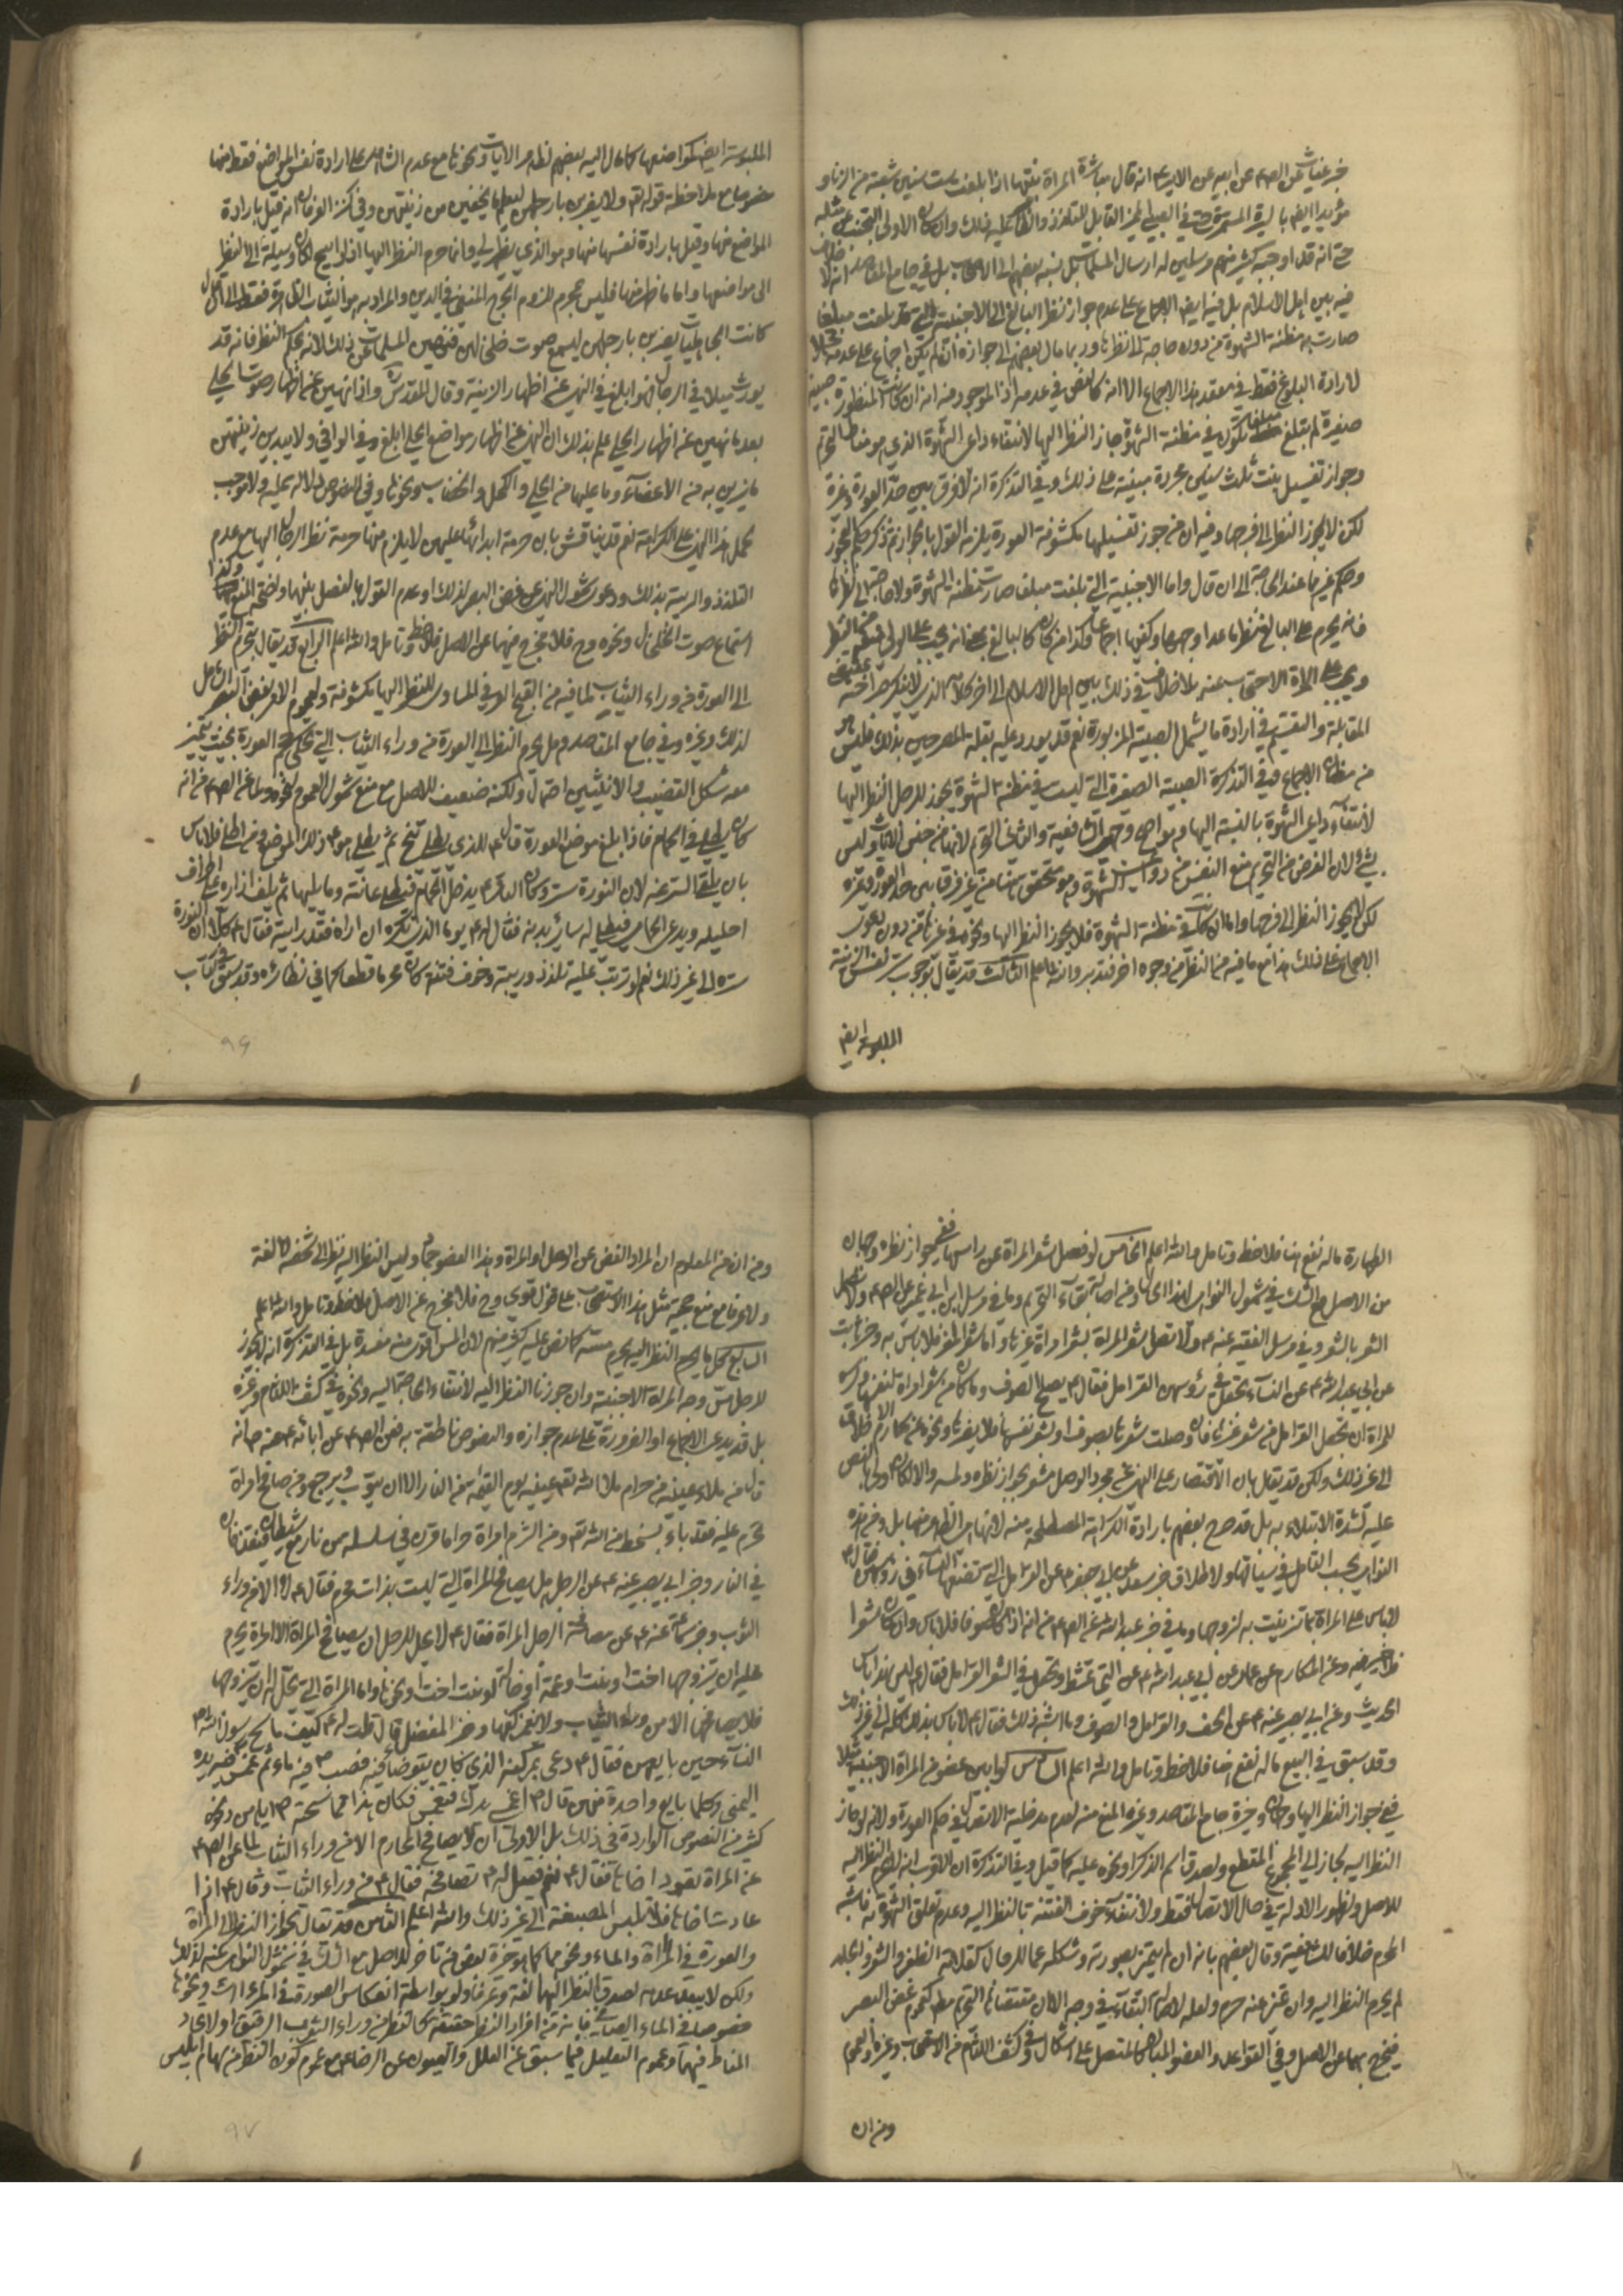 خبر غياث عن الص ع عن ابيه عن الامير ع انه قال مباشرة المراة بنتها اذا بلغت ست سنين شعبة من الزنا و
مؤيدا ايض بالسيرة المستمرة حتى في الصبي الغير القابل للتلذذ والظ عليه ذلك وان كان الاولى التجنب عن مثله
حتى انه قد اوجبه كثير منهم مرسلين له ارسال المسلمات بل نسبه بعضهم الى الاصحاب بل في جامع المقاصد انه لا خلاف
فيه بين اهل الاسلام بل فيه ايض الاجماع على عدم جواز نظر البالغ الى الاجنبية التي قد بلغت مبلغا
صارت به مظنة الشهوة من دون حاجة الى نظرها وربما مال بعضهم الى جوازه ان لم يكن اجماع على عدمه
لارادة البلوغ فقط في معقد هذا الاجماع الا انه كالنص في عدمه اذ الموجود فيه انه ان كانت المنظورة صبية
صغيرة لم تبلغ مبلغا تكون في مظنة الشهوة جاز النظر اليها لانتفاء داعي الشهوة الذي هو مناط التحريم
وجواز تغسيل بنت ثلث سنين مجردة مبنية على ذلك وفي التذكرة انه لا فرق بين حد العورة وغيره
لكن لا يجوز النظر الى فرجها وفيه ان من جوز تغسيلها مكشوفة العورة يلزمه القول بالجواز ثم ذكر حكم العجوز
وحكم غيرها عند الحاجة الى ان قال واما الاجنبية التي بلغت مبلغا صارت مظنة الشهوة ولا حاجة الى نظرها
فانه يحرم على البالغ نظر ما عدا وجهها وكفيها اجماعا وكذا من كان كالبالغ بمعنى انه يجب على الولي منعه من النظر
ويجب على المراة الاحتجاب عنه بلا خلاف في ذلك بين اهل الاسلام الى اخر كلامه الذي لا ينكر صراحته
المقابلة والتقسيم في ارادة ما يشمل الصبية المزبورة نعم قد يورد عليه بقلة المصرحين بذلك فليس هو
من مظان الاجماع وفي التذكرة الصبية الصغيرة التي ليست في مظنة الشهوة يجوز للرجل النظر اليها
لانتفاء داعي الشهوة بالنسبة اليها وهو اصح وجهي الشافعية والثاني التحريم لانها من جنس الاناث وليس
بشئ لان الغرض من التحريم منع النفس من دواعي الشهوة وهو متحقق هنا من غير فرق بين حد العورة وغيره
لكن لا يجوز النظر الى فرجها واما ان كانت في مظنة الشهوة فلا يجوز النظر اليها ونحوه في غيرها من دون دعوى
الاجماع على ذلك هذا مع ما فيه من النظر من وجوه اخر فتدبر والله اعلم الثالث قد يقال بوجوب ستر نفس الزينة
الملبوسة ايض
الملبوسة ايض كمواضعها كما مال اليه بعضهم لظاهر الايات ونحوها مع عدم الشاهد على ارادة نفس المواضع فقط منها
خصوصا مع ملاحظة قوله تع ولا يضربن بارجلهن ليعلم ما يخفين من زينتهن وفي كنز العرفان انه قيل بارادة
المواضع منها وقيل بارادة نفسها منها وهو الذي يظهر لي وانما حرم النظر اليها اذ لو ابيح لكان وسيلة الى النظر
الى مواضعها واما ما ظهر منها فليس بمحرم للزوم الحرج المنفي في الدين والمراد به هو الثياب الظاهرة فقط الى ان قال
كانت الجاهليات يضربن بارجلهن ليسمع صوت خلخالهن فنهين المسلمات عن ذلك لانه بحكم النظر فانه قد
يورث ميلا في الرجال فهو ابلغ في النهي عن اظهار الزينة وقال المقدس ره واذا نهين عن اظهار صوت الحلي
بعد ما نهين عن اظهار الحلي علم بذلك ان النهي عن اظهار مواضع الحلي ابلغ وفي الوافي ولا يبدين زينتهن
ما يتزين به من الاعضاء وما عليها من الحلي والكحل والخضاب ونحوها وفي النصوص دلالة عليه ولا موجب
لحمل هذا النهي على الكراهة نعم قد يناقش بان حرمة ابدائها عليهن لا يلزم منها حرمة نظر الرجال اليها مع عدم
التلذذ والريبة بذلك ودعوى شمول النهي عن غض البصر لذلك او عدم القول بالفصل بينهما واضحة المنع وكذا
استماع صوت الخلخال ونحوه وح فلا مخرج منها عن الاصل فلاحظ وتامل والله اعلم الرابع قد يقال بتحريم النظر
الى العورة من وراء الثياب لما فيه من القبح العرفي المساوي للنظر اليها مكشوفة ولعموم الامر بغض البصر الشامل
لذلك وغيره وفي جامع المقاصد وهل يحرم النظر الى العورة من وراء الثياب التي تحكي حجم العورة بحيث يتميز
معه شكل القضيب والانثيين احتمال ولكنه ضعيف للاصل مع منع شمول العموم لنحوه ولما عن الص ع من انه
كان يطلى في الحمام فاذا بلغ موضع العورة قال للذي يطلي تنح ثم يطلي هو ع ذلك الموضع ومن اطلى فلا باس
بان يلقى الستر عنه لان النورة ستر وكان الباقر ع يدخل الحمام فيطلى عانته وما يليها ثم يلف ازاره على اطراف
احليله ويدعو الحمامي فيطلي له سائر بدنه فقال له يوما الذي تكره ان اراه قد رايته فقال ع كلا ان النورة
سترة الى غير ذلك نعم لو ترتب عليه تلذذ وريبة وخوف فتنة كان محرما قطعا كما في نظائره وقد سبق في كتاب
٩٦
الطهارة ما له نفع هنا فلاحظ وتامل والله اعلم الخامس لو فصل شعر المراة عن راسها ففي جواز نظره وجهان
من الاصل مع الشك في شمول النواهي لهذا الحال ومن اصالة بقاء التحريم وما في مرسل ابن ابي عمير عن الص ع ولا تصل
الشعر بالشعر وفي مرسل الفقيه عنه ع ولا تصل شعر المراة بشعر امراة غيرها واما شعر المعز فلا باس به وخبر ثابت
عن ابي عبد الله ع عن النساء يجعل في رؤسهن القرامل فقال ع يصلح الصوف وما كان من شعر امراة لنفسها وكره
للمراة ان تجعل القرامل من شعر غيرها فان وصلت شعرها بصوف او بشعر نفسها فلا يضرها ونحوه عن مكارم الاخلاق
الى غير ذلك ولكن قد يقال بان الاقتصار على النهي عن مجرد الوصل مشعر بجواز نظره ولمسه والا لكان اولى بالنص
عليه لشدة الابتلاء به بل قد صرح بعضهم بارادة الكراهة المصطلحة منه لانها هي الظاهر منها بل ومن هذه
النواهي بحسب التامل في سياقها ولاطلاق خبر سعد عن ابي جعفر ع عن القرامل التي تضعها النساء في رؤسهن فقال ع
لا باس على المراة بما تزينت به لزوجها وما في خبر عبد الله عن الص ع من انه اذا كان صوفا فلا باس وان كان شعرا
فلا خير فيه وعن المكارم عن عمار عن ابي عبد الله ع عن التي تمشط وتجعل في الشعر القرامل فقال ع ليس بهذا باس
الحديث وعن ابي بصير عنه ع عن الحف والقرامل والصوف وما اشبه ذلك فقال ع لا باس بذلك كله الى غير ذلك
وقد سبق في البيع ما له نفع هنا فلاحظ وتامل والله اعلم السادس لو ابين عضو من المراة الاجنبية مثلا
ففي جواز النظر اليها وجهان وخيرة جامع المقاصد وغيره المنع منه لعدم مدخلية الاتصال في حكم العورة ولانه لو جاز
النظر اليه لجاز الى المجموع المقطع ولصدق اسم الذكر او نحوه عليه كما قيل وفي التذكرة ان الاقرب انه لا يحرم النظر اليه
للاصل ولظهور الادلة في حال الاتصال فقط ولانتفاء خوف الفتنة بالنظر اليه وعدم تعلق الشهوة به فاشبه
المحرم خلافا للشافعية وقال بعضهم بانه ان لم يتميز بصورته وشكله عما للرجال كقلامة الظفر والشعر والجلد
لم يحرم النظر اليه وان تميز عنه حرم ولعله لاصالة البقاء في وجه الا ان مقتضاها التحريم مطلقا كعموم غض البصر
فيخرج بهما عن الاصل وفي القواعد والعضو المبان كالمتصل على اشكال وفي كشف اللثام من الاستصحاب وغيره العموم
ومن ان
ومن ان من المعلوم ان المراد الغض عن الرجل او المراة وهذا العضو جماد وليس النظر اليه نظرا الى شخص لا لغة
ولا عرفا مع منع حجية مثل هذا الاستصحاب على قول قوي وح فلا مخرج عن الاصل فلاحظ وتامل والله اعلم
السابع كل ما يحرم النظر اليه يحرم مسه كما نص عليه كثير منهم لان المس اقوى منه مفسدة بل في التذكرة انه لا يجوز
للرجل مس وجه المراة الاجنبية وان جوزنا النظر اليه لانتفاء الحاجة اليه ونحوه في كشف اللثام وغيره
بل قد يدعى الاجماع او الضرورة على عدم جوازه والنصوص ناطقة به فعن الص ع عن ابائه ع عنه ص انه
قال من ملاء عينيه من حرام ملا الله تع عينيه يوم القيمة من النار الا ان يتوب ويرجع ومن صافح امراة
تحرم عليه فقد باء بسخط من الله تع ومن التزم امراة حراما قرن في سلسلة من نار مع شيطان فيقذفان
في النار وخبر ابي بصير عنه ع عن الرجل هل يصافح المراة التي ليست بذات محرم فقال ع لا الا من وراء
الثوب وخبر سماعة عنه ع عن مصافحة الرجل المراة فقال ع لا يحل للرجل ان يصافح المراة الا امراة يحرم
عليه ان يتزوجها اخت او بنت او عمة او خالة او بنت اخت او نحوها واما المراة التي يحل له ان يتزوجها
فلا يصافحها الا من وراء الثياب ولا يغمز كفها وخبر المفضل قال قلت له ع كيف ماسح رسول الله ص
النساء حين بايعهن فقال ع دعى بمركنه الذي كان يتوضا فيه فصب ص فيه ماء ثم غمس فيه يده
اليمنى وكلما بايع واحدة منهن قال ص اغمسي يدك فتغمس فكان هذا مماسحته ص اياهن ونحوه
كثير من النصوص الواردة في ذلك بل الاولى ان لا يصافح المحارم الا من وراء الثياب لما عن الص ع
عن المراة يقود اخاها فقال ع نعم فقيل له ع تصافحه فقال ع من وراء الثياب وقال ع اذا
عادت اخاها فلا تلبس المصبغة الى غير ذلك والله اعلم الثامن قد يقال بجواز النظر الى المراة
والعورة في المراة والماء ونحوهما كما هو خيرة بعض من تاخر للاصل مع الشك في شمول النواهي عنه لذلك
ولكن لا يبعد عدمه لصدق النظر اليها لغة وعرفا ولو بواسطة انعكاس الصورة في المراءات ونحوها
خصوصا في الماء الصافي فانه من افراد النظر حقيقة كالنظر من وراء الثوب الرقيق او لاتحاد
المناط فيهما وعموم التعليل فيما سبق عن العلل والعيون عن الرضا ع مع عموم كون النظر من سهام ابليس
٩٧